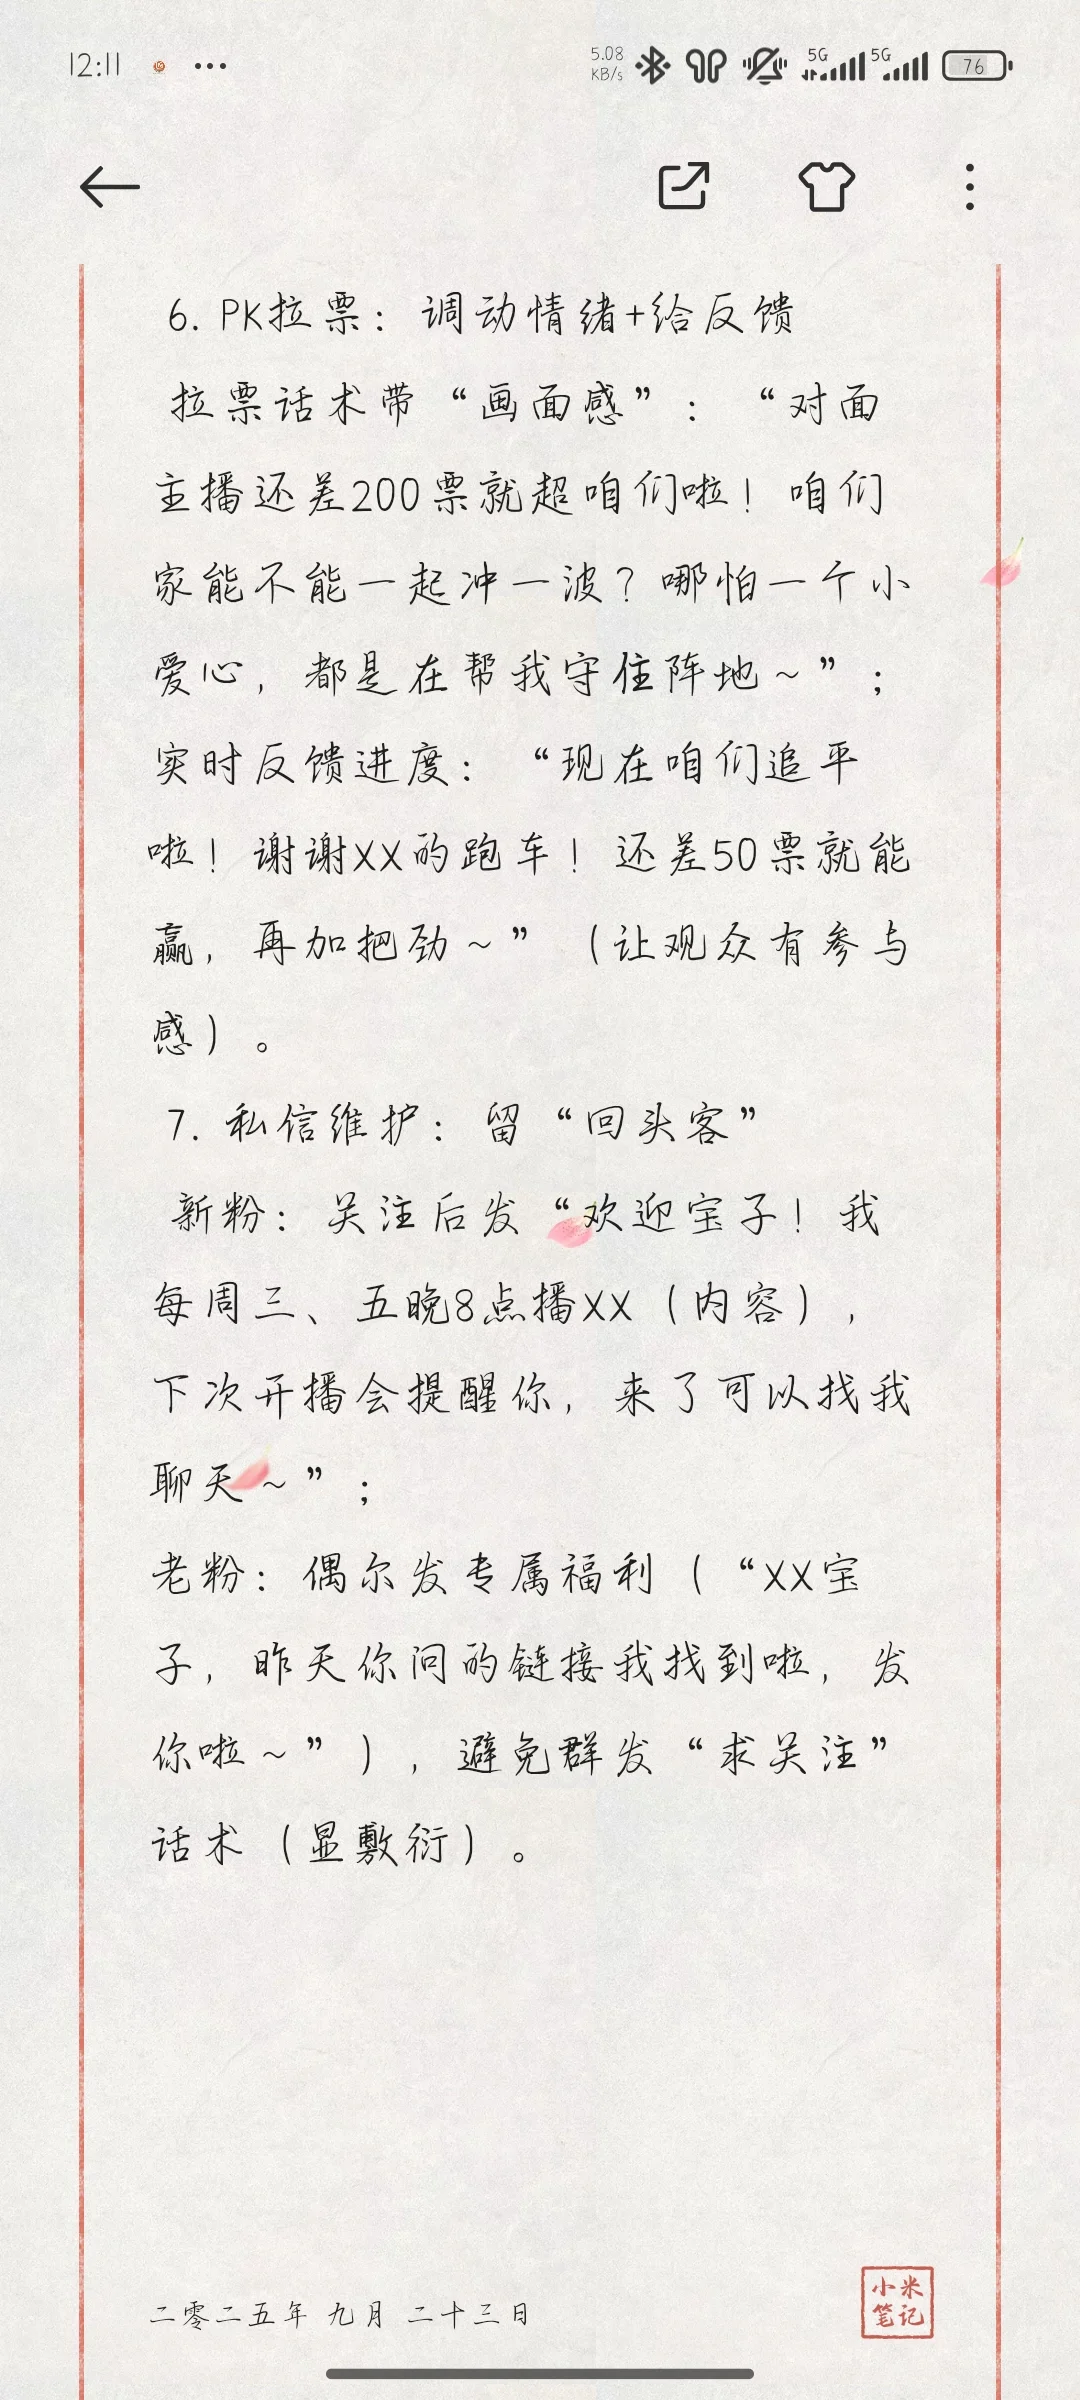 12:11
5.08 KB/s 5G 5G 76
6. PK拉票：调动情绪+给反馈
拉票话术带“画面感”：“对面
主播还差200票就超咱们啦！咱们
家能不能一起冲一波？哪怕一个小
爱心，都是在帮我守住阵地～”；
实时反馈进度：“现在咱们追平
啦！谢谢XX的跑车！还差50票就能
赢，再加把劲～”（让观众有参与
感）。
7. 私信维护：留“回头客”
新粉：关注后发“欢迎宝子！我
每周三、五晚8点播XX（内容），
下次开播会提醒你，来了可以找我
聊天～”；
老粉：偶尔发专属福利（“XX宝
子，昨天你问的链接我找到啦，发
你啦～”），避免群发“求关注”
话术（显敷衍）。
二零二五年 九月 二十三日
小米
笔记